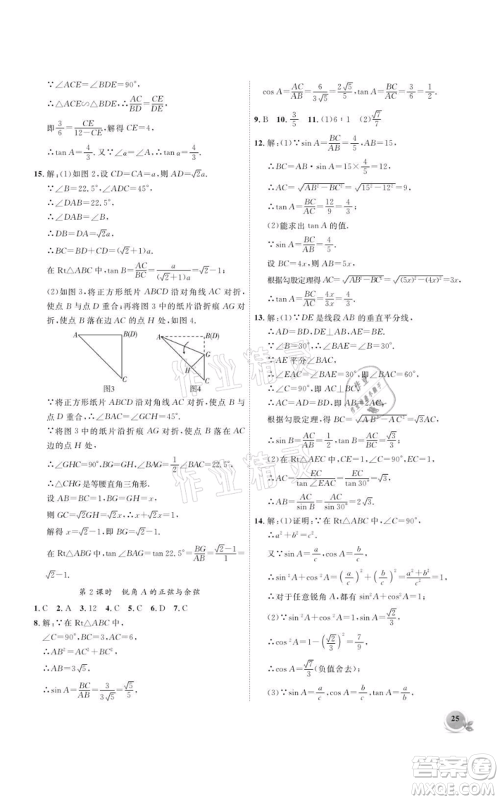 ∵∠ACE=∠BDE=90°,
∴△ACE∽△BDE. ∴AC/BD=CE/DE.
即3/6=CE/(12-CE), 解得 CE=4,
∴tan A=4/3. ∵∠α=∠A, ∴tan α=4/3.
15. 解:(1)如图 2, 设 CD=CA=a, 则 AD=√2a.
∵∠B=22.5°,
∴∠BAD=22.5°.
∴DB=DA=√2a.
∴BC=BD+CD=(√2+1)a.
在 Rt△ABC 中, tan B=AC/BC=a/((√2+1)a)=√2-1;
(2)如图 3, 将正方形纸片 ABCD 沿 AC 对折,
使点 B 与点 D 重合. 再将图 3 的纸片沿折痕 AG 对折,
使点 B 落在边 AC 的点 H 处, 如图 4.
A B(D)
C
图3
A B(D)
G
H
C
图4
∵将正方形的纸片 ABCD 沿 AC 对折, 使点 B
与点 D 重合,
又∵将图 3 的纸片沿折痕 AG 对折, 使点 B 落在边 AC
的点 H 处,
∴∠GHC=90°, ∠BAG=1/2∠BAC=22.5°.
∴△CHG 是等腰直角三角形.
设 AB=BC=1, BG=GH=x.
∴GC=√2GH=√2x, ∴x+√2x=1.
∴x=√2-1.
∴在 Rt△ABG 中, tan∠BAG=tan 22.5°=BG/AB=(√2-1)/1
=√2-1.
第 2 课时 锐角 A 的正弦与余弦
1. C 2. A 3. 12 4. D 5. D 6. D 7. C
8. 解:∵在 Rt△ABC 中,
∠C=90°, BC=3, AC=6,
∴AB²=AC²+BC².
∴AB=3√5.
∴sin A=BC/AB=3/(3√5)=√5/5,
cos A=AC/AB=6/(3√5)=2√5/5, tan A=BC/AC=3/6=1/2.
9. B 10. 3/5 11. (1)6
12. 解:(1)∵sin A=BC/AB=4/5,
∴BC=AB·sin A=15×4/5=12,
∴AC=√(AB²-BC²)=√(15²-12²)=9,
∴tan A=BC/AC=12/9=4/3.
(2)能求出 tan A 的值.
∵sin A=BC/AB=4/5.
设 BC=4x, 则 AB=5x,
根据勾股定理得 AC=√(AB²-BC²)=√((5x)²-(4x)²)=3x,
∴tan A=BC/AC=4x/3x=4/3.
13. 解:(1)∵DE 是线段 AB 的垂直平分线,
∴AD=BD, ∴∠DAE=∠B.
∵∠B=30°, ∴∠DAE=30°.
∵AE平分∠BAC,
∴∠EAC=∠BAE=30°.
∴∠BAC=60°.
∴∠C=90°. ∴AB=2AC,
根据勾股定理, 得 BC=√3AC.
∴sin∠BAC=BC/AB=√3/2.
(2)在 Rt△ACE 中, CE=1, ∠EAC=30°.
∴AC=EC/tan∠EAC=EC/tan 30°=√3.
14. 解:(1)证明:∵∠C=90°,
∴a²+b²=c²,
∵sin A=a/c, cos A=b/c,
∴sin²A+cos²A=(a/c)²+(b/c)²=(a²+b²)/c²=c²/c²=1.
∴对于任意锐角 A, 都有 sin²A+cos²A=1.
(2)∵sin²A+cos²A=1,
∴cos²A=1-(√2/3)²=7/9,
∴cos A=√7/3(负值舍去);
(3)∵sin A=a/c, cos A=b/c,
25
作业精灵